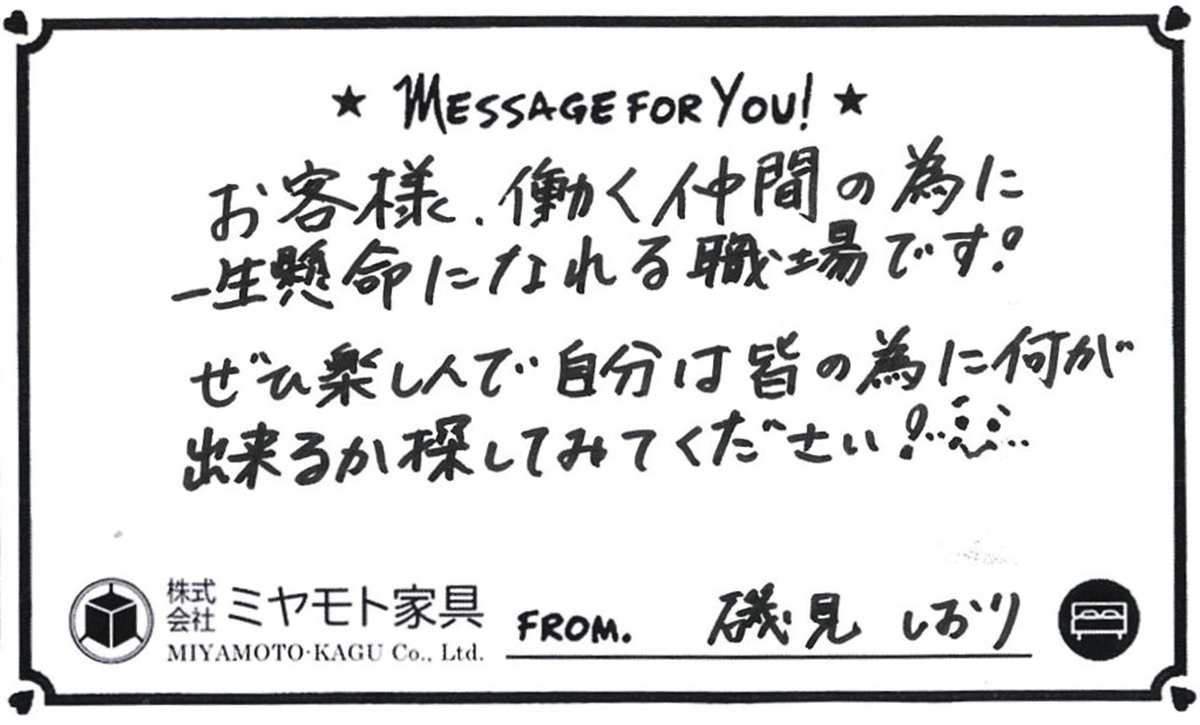 ★ MESSAGE FOR YOU! ★
お客様、働く仲間の為に
一生懸命になれる職場です!
ぜひ楽しんで自分は皆の為に何が
出来るか探してみてください!
株式会社 ミヤモト家具
MIYAMOTO-KAGU Co., Ltd.
FROM. 磯見 しおり